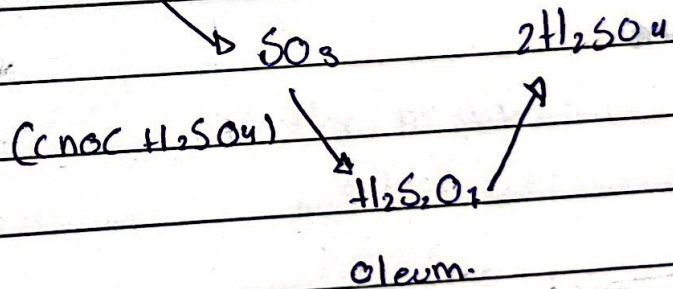 SO3 2H2SO4
(cnoc H2SO4)
H2S2O7
oleum.